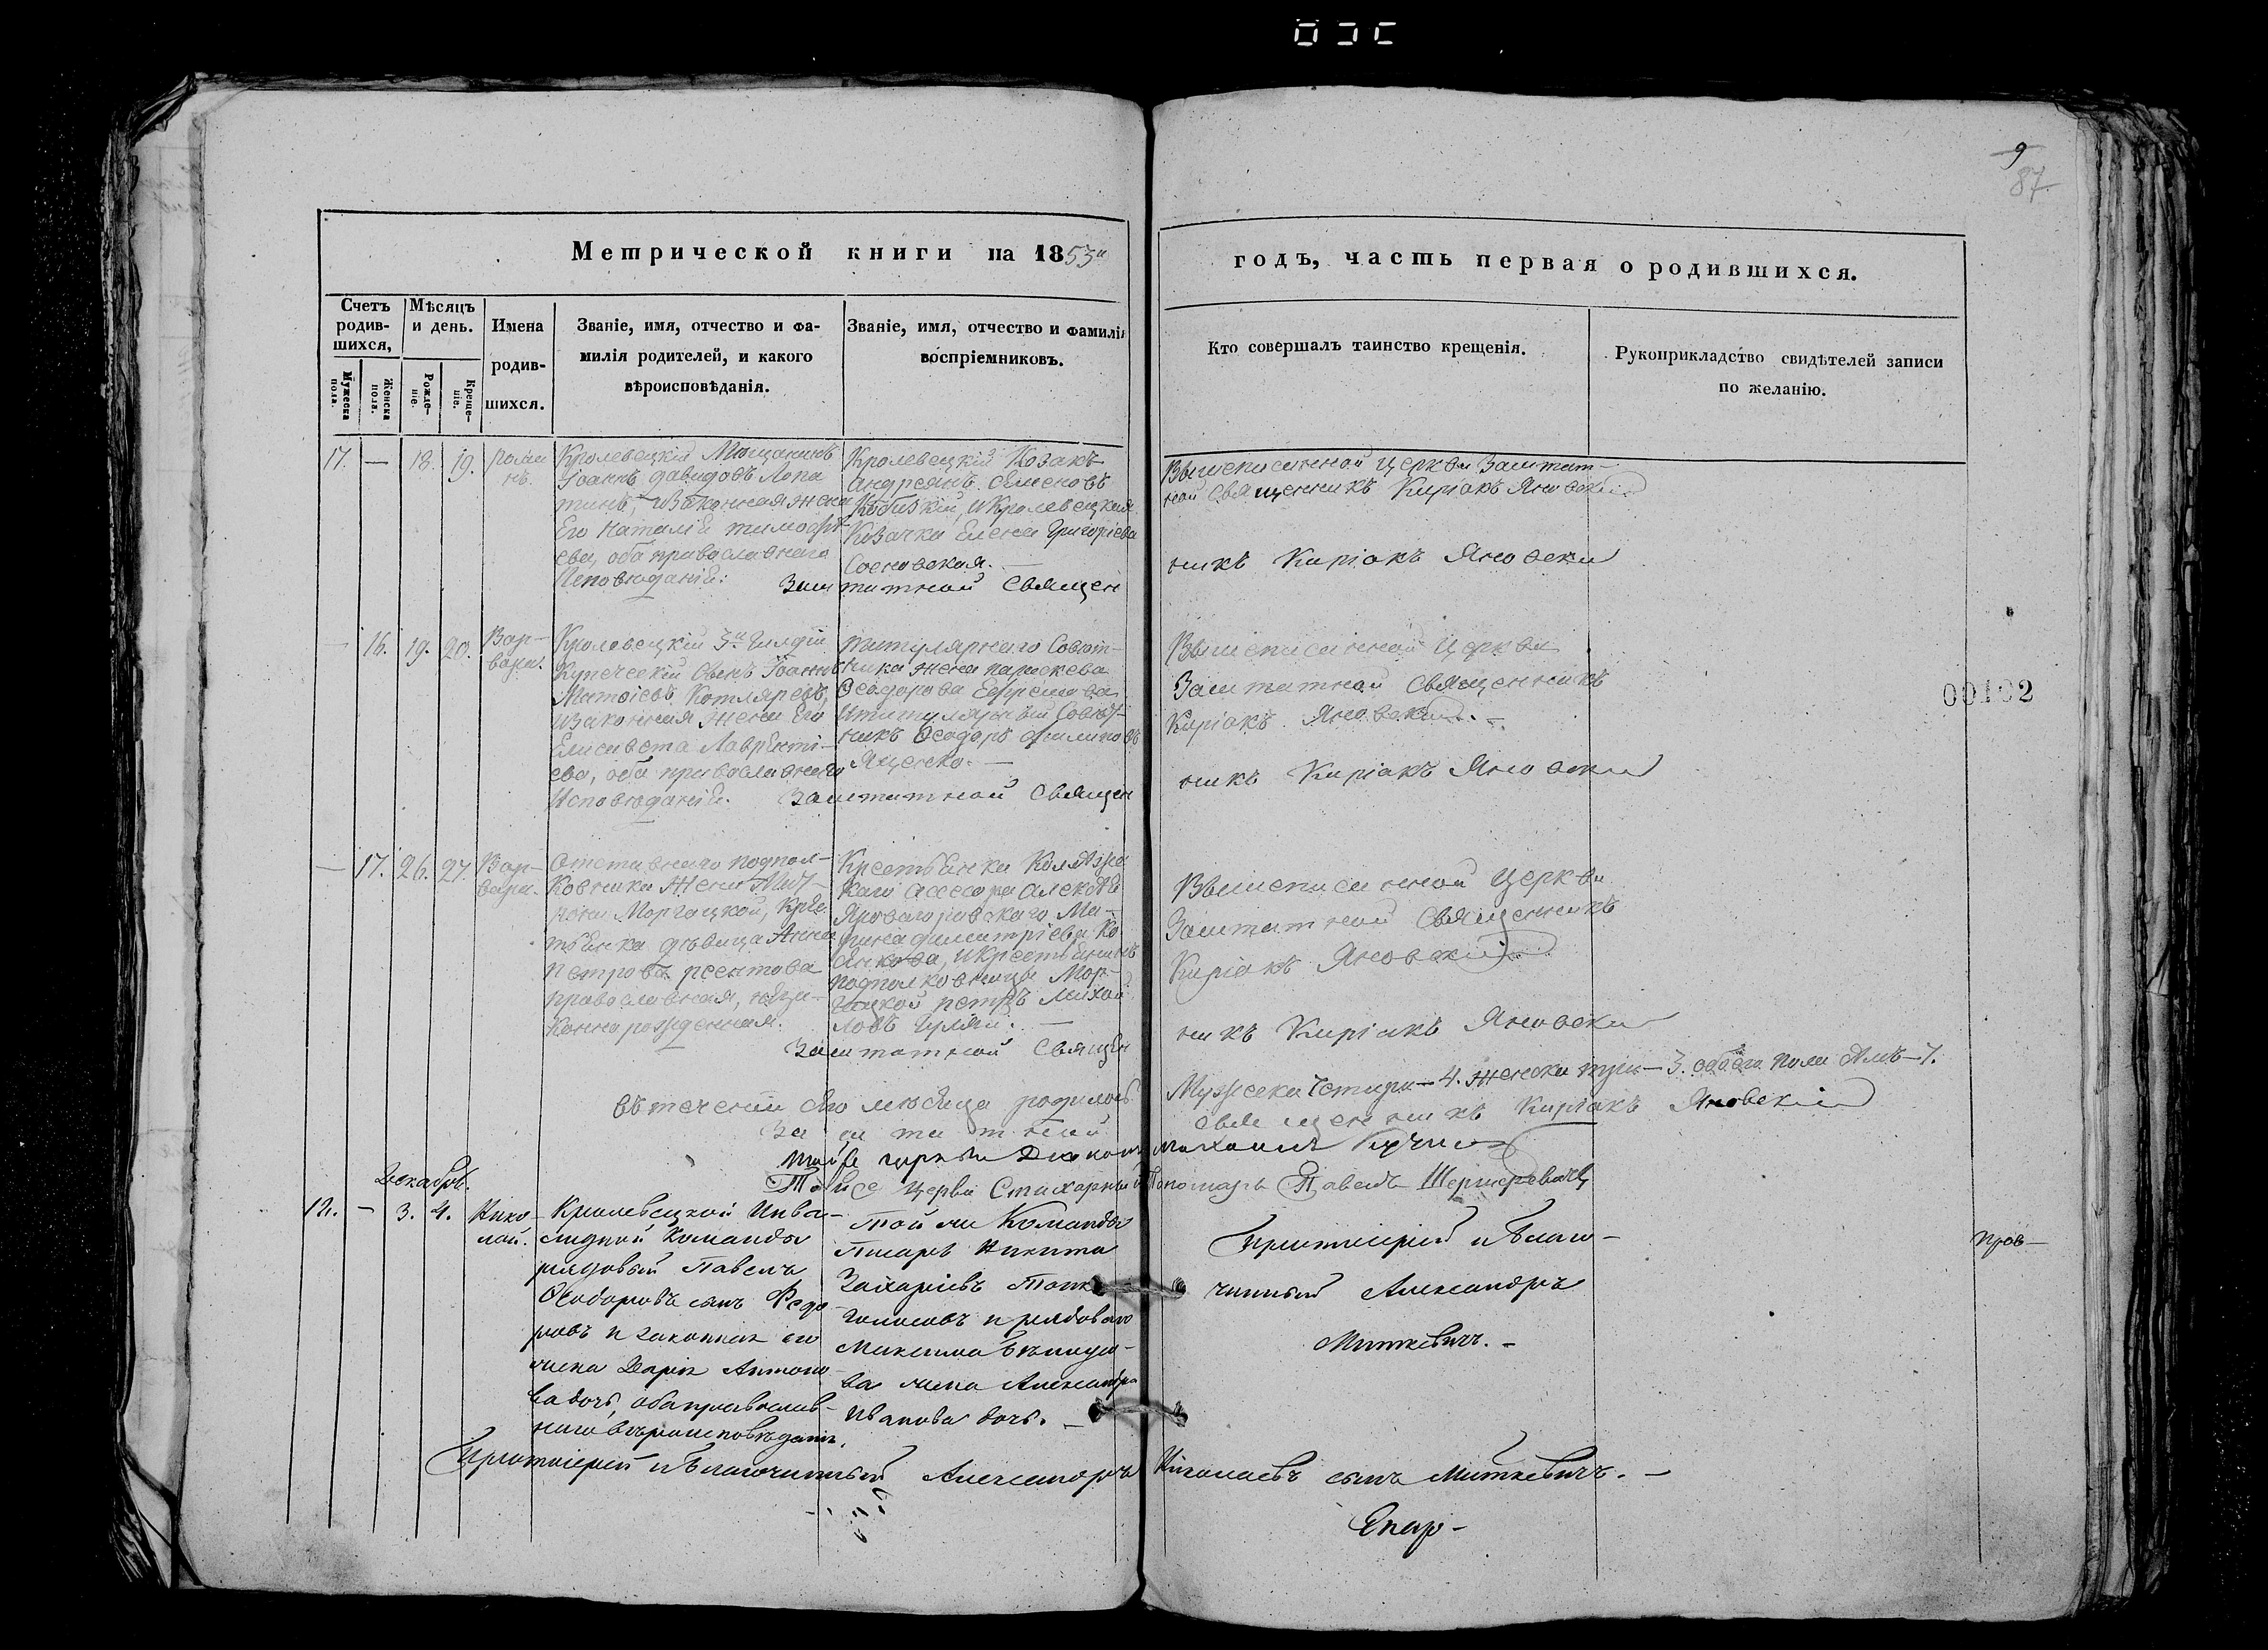 9
87
Метрической книги на 1853й
годъ, часть первая о родившихся.
Счетъ родив-шихся,
Мужеска пола.
Женска пола.
Мѣсяцъ и день.
Рожде-ніе.
Креще-ніе.
Имена
родив-
шихся.
Званіе, имя, отчество и фа-
милія родителей, и какого
вѣроисповѣданія.
Званіе, имя, отчество и фамилія
воспріемниковъ.
Кто совершалъ таинство крещенія.
Рукоприкладство свидѣтелей записи
по желанію.
17. — 18. 19.
Рома
нъ.
Кролевецкій Мѣщанинъ
Іоаннъ Давидовъ Лопа
тинъ, изаконная жена
Его Наталія Тимофѣ-
ева, оба православнаго
Исповѣданія:
Кролевецкій Козакъ
Андреянъ Семеновъ
Кобизкій, и Кролевецкая
Козачка Елена Григоріева
Сосновская. —
Вышеписанной Церкви Заштат-
ной Священникъ Киріакъ Яновскій
Заштатной Священ
никъ Киріакъ Яновскій
— 16. 19. 20.
Вар-
вара.
Кролевецкій 3й Гилдіи
Купеческій Сынъ Іоаннъ
Матвіевъ Котляревъ,
изаконная жена Его
Елисавета Лавренті-
ева, оба православнаго
Исповѣданія.
Титулярнаго Совѣт-
ника жена Параскева
Ѳеодорова Ефремова
ититулярный Совѣт-
никъ Ѳеодоръ Филиповъ
Яценко. —
Вышеписанной Церкви
Заштатной Священникъ
Киріакъ Яновскій. —
Заштатной Священ
никъ Киріакъ Яновскій
00102
— 17. 26. 27.
Вар-
вара.
Отставнаго подпол-
ковника Жены
Моргоцкой, Крес
тьянка дѣвица Анна
Петрова
православная, неза-
коннорожденная.
Крестьянка Коллѣжс
каго Ассесора Алексѣя
Ма-
рина Димитріева Ко
икрестьянинъ
подполковницы Мор-
гоцкой Петръ Михай
ловъ —
Вышеписанной Церкви
Заштатной Священникъ
Киріакъ Яновскій.
Заштатной Священ
никъ Киріакъ Яновскій
Вѣ теченіи сего месѣяца родилось
Мужеска Четыри — 4. Женска три — 3. обоего пола Лицъ — 7.
Заштатной Священникъ Киріакъ Яновскій
Тойже церкви Діаконъ Михаилъ
Тойже Церкви Стихарный Пономарь Павелъ
Декабрь.
12. — 3. 4.
Нико-
лай.
Кролевецкой Инва-
лидной Команды
рядовый Павелъ
Ѳеодоровъ сынъ Федо
ровъ и законная его
жена Дарія Антоно-
ва дочь, оба православ-
наго вѣроисповѣданія.
Той же Команды
Писарь Никита
Захаріевъ
и рядоваго
Максима
ва жена Александра
Иванова дочь. —
Протоіерей и Благо-
чинный Александръ
Миткевичъ. —
пров —
Протоіерей и Благочинный Александръ Николаевъ сынъ Миткевичъ. —